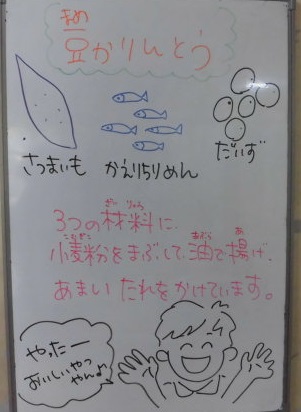 まめ
豆かりんとう
さつまいも
かえりちりめん
だいず
ざい りょう
3つの材料に、
こむぎこ あぶら あ
小麦粉をまぶして、油で揚げ、
あまい たれをかけています。
やったー
おいしいやつ
やんっ